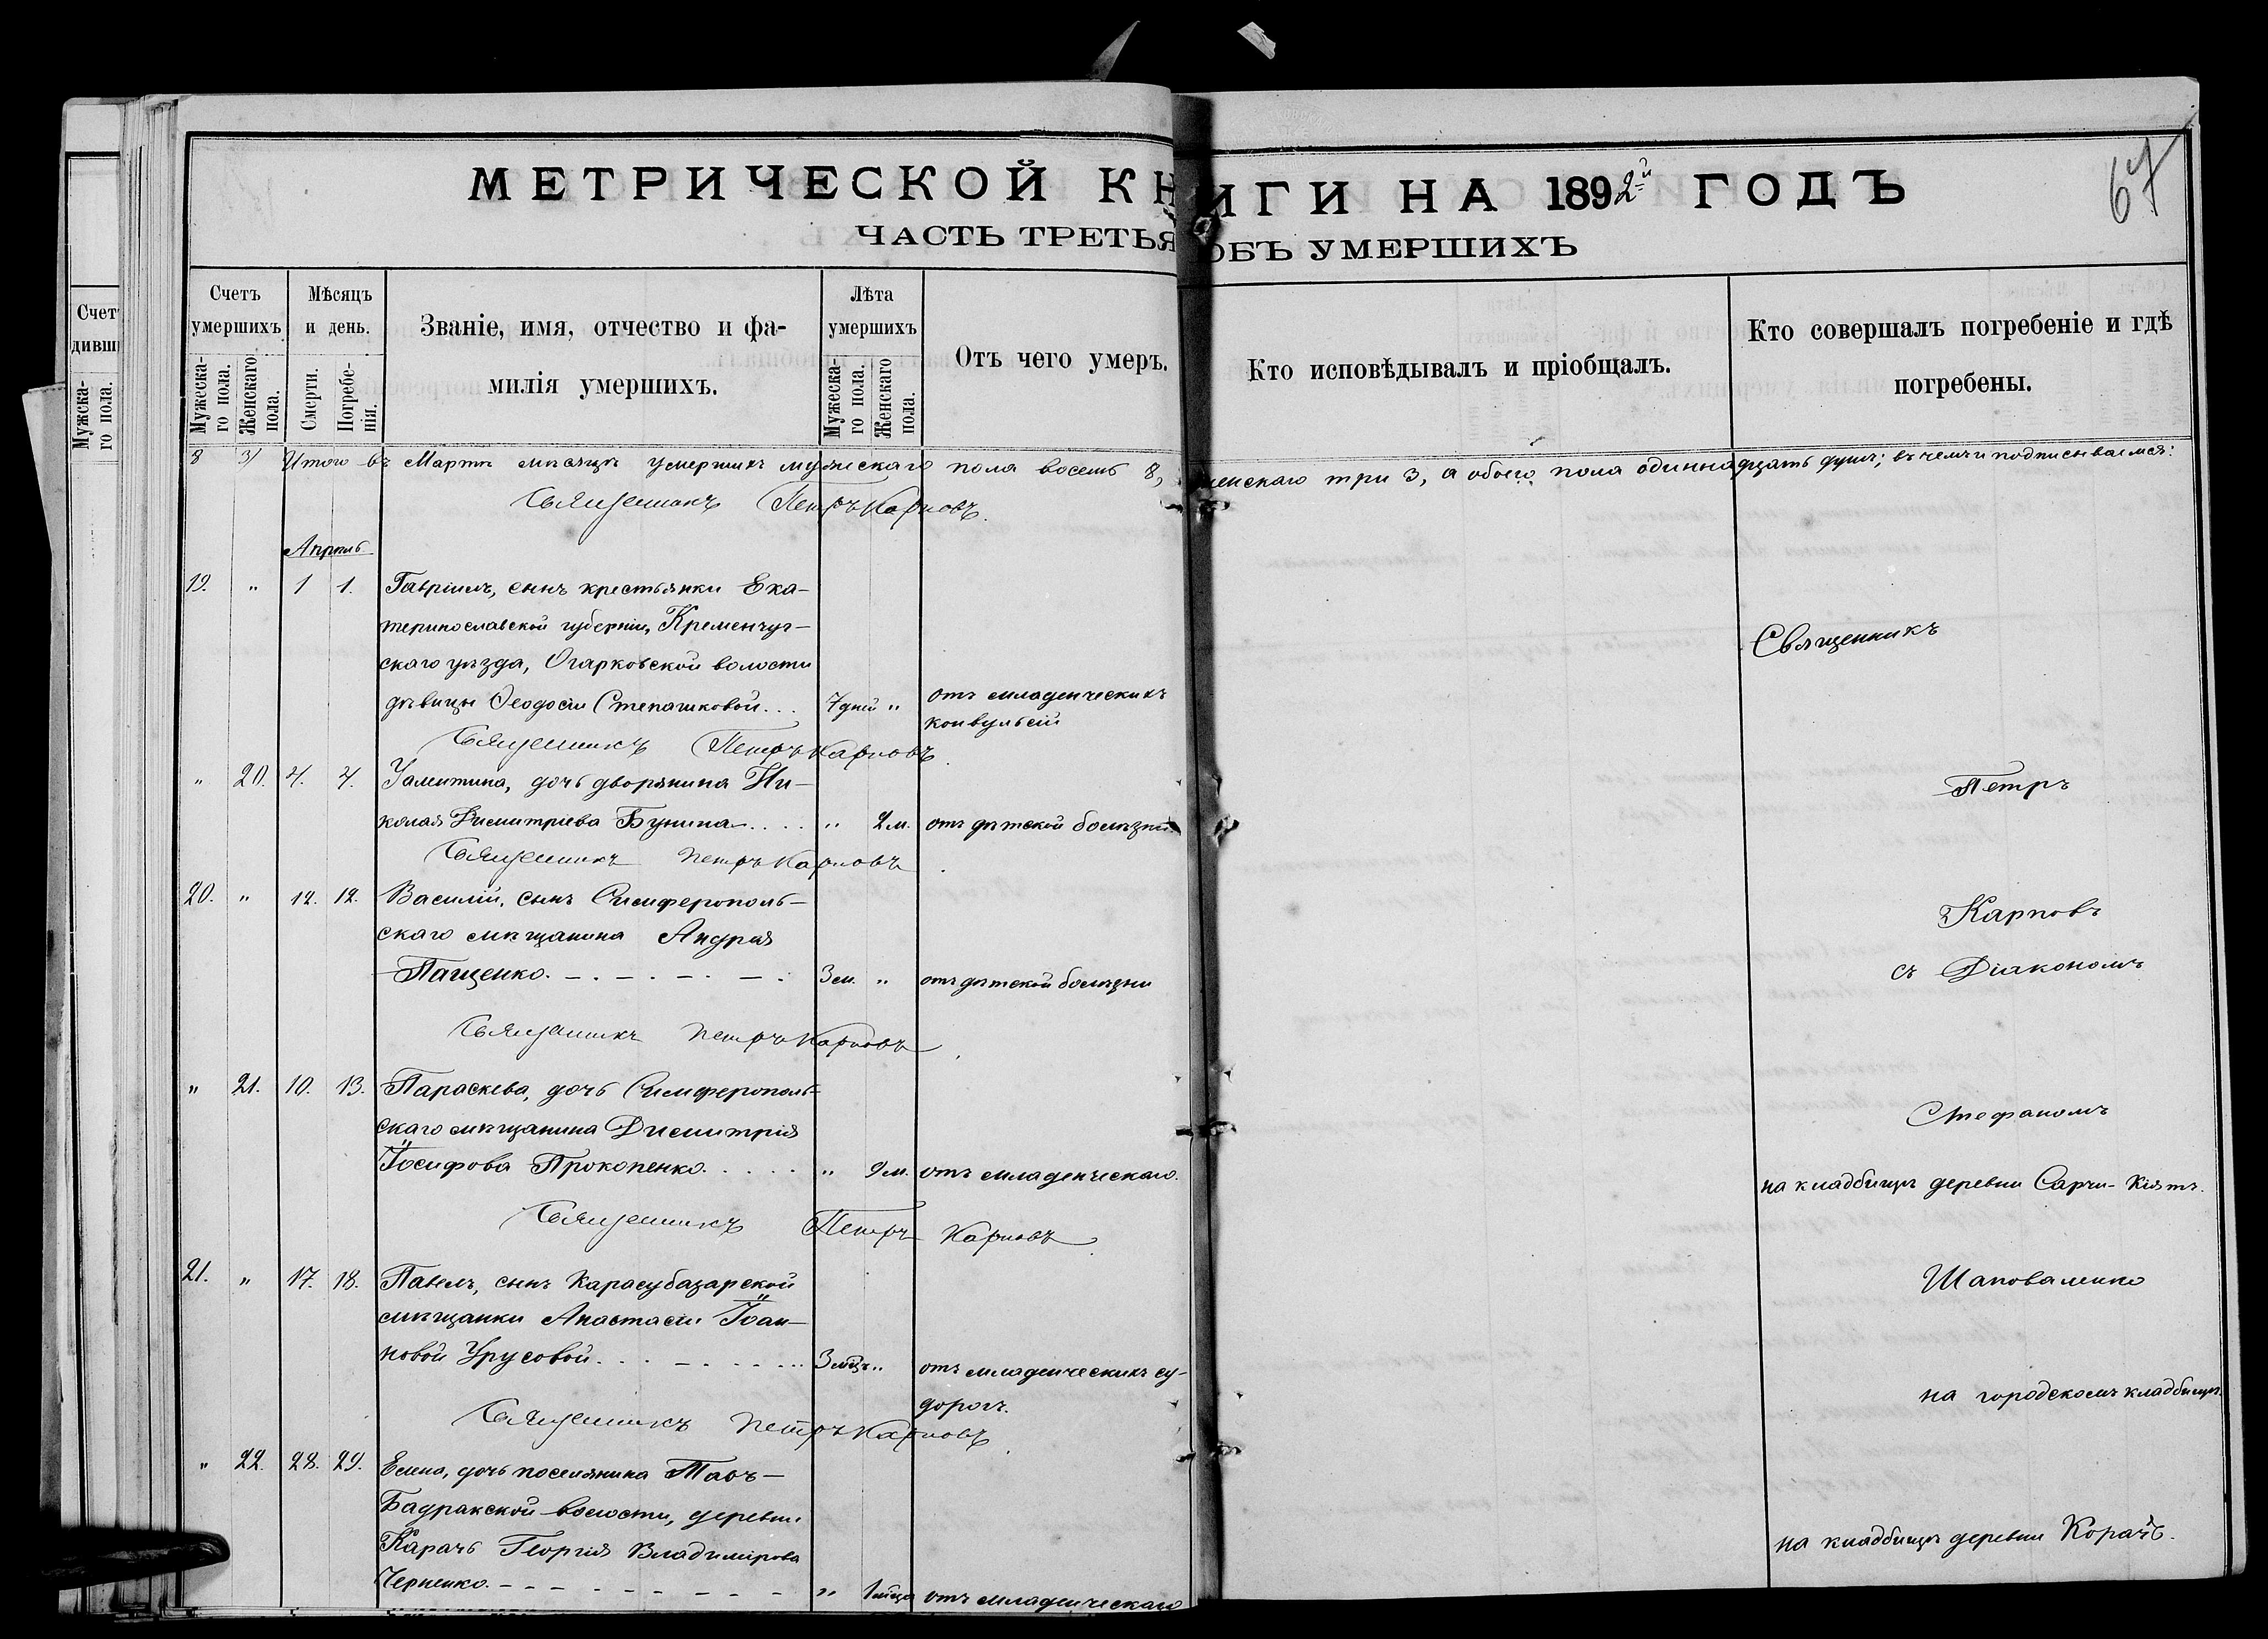 МЕТРИЧЕСКОЙ КНИГИ НА 1892й ГОДЪ
67
ЧАСТЬ ТРЕТЬЯ ОБЪ УМЕРШИХЪ
Счет
дивш
Мужска-
го пола.
Счетъ
умершихъ
Мужеска-
го пола.
Женскаго
пола.
Мѣсяцъ
и день.
Смерти.
Погребе-
нія.
Званіе, имя, отчество и фа-
милія умершихъ.
Лѣта
умершихъ
Мужеска-
го пола.
Женскаго
пола.
Отъ чего умеръ.
Кто исповѣдывалъ и пріобщалъ.
Кто совершалъ погребеніе и гдѣ
погребены.
8 3/ Итого въ Мартѣ мѣсяцѣ умершихъ мужескаго пола восемь 8, женскаго три 3, а обоего пола одиннадцать душъ; въ чемъ и подписываемся:
Священникъ Петръ Карповъ.
Апрѣль
19. " 1 1. Гавріилъ, сынъ крестьянки Ека-
теринославской губерніи, Кременчуг-
скаго уѣзда, Огарковской волости
дѣвицы Ѳеодосіи Степашковой... 7 дней " отъ младенческихъ
конвульсій
Священникъ Петръ Карповъ.
" 20. 4. 4. Валентина, дочь дворянина Ни-
колая Димитріева Бунина.... " 2 м. отъ дѣтской болѣзни.
Священникъ Петръ Карповъ.
20. " 12. 12. Василій, сынъ Симферополь-
скаго мѣщанина Андрея
Пащенко. 3 м. " отъ дѣтской болѣзни
Священникъ Петръ Карповъ.
" 21. 10. 13. Параскева, дочь Симферополь-
скаго мѣщанина Димитрія
Іосифова Прокопенко..... " 9 м. отъ младенческаго.
Священникъ Петръ Карповъ.
21. " 17. 18. Павелъ, сынъ Карасубазарской
мѣщанки Анастасіи Іоан-
новой Урусовой. 3 мцъ " отъ младенческихъ су-
дорогъ.
Священникъ Петръ Карповъ.
" 22. 28. 29. Елена, дочь поселянина Тавъ-
Бадракской волости, деревни
Карачъ Георгія Владимірова
Черненко. " 1 мѣца отъ младенческаго
Священникъ
Петръ
Карповъ
съ Діакономъ
Стефаномъ
на кладбищѣ деревни Сарчи-Кіятъ.
Шаповаленко
на городскомъ кладбищѣ.
на кладбищѣ деревни Корачъ.